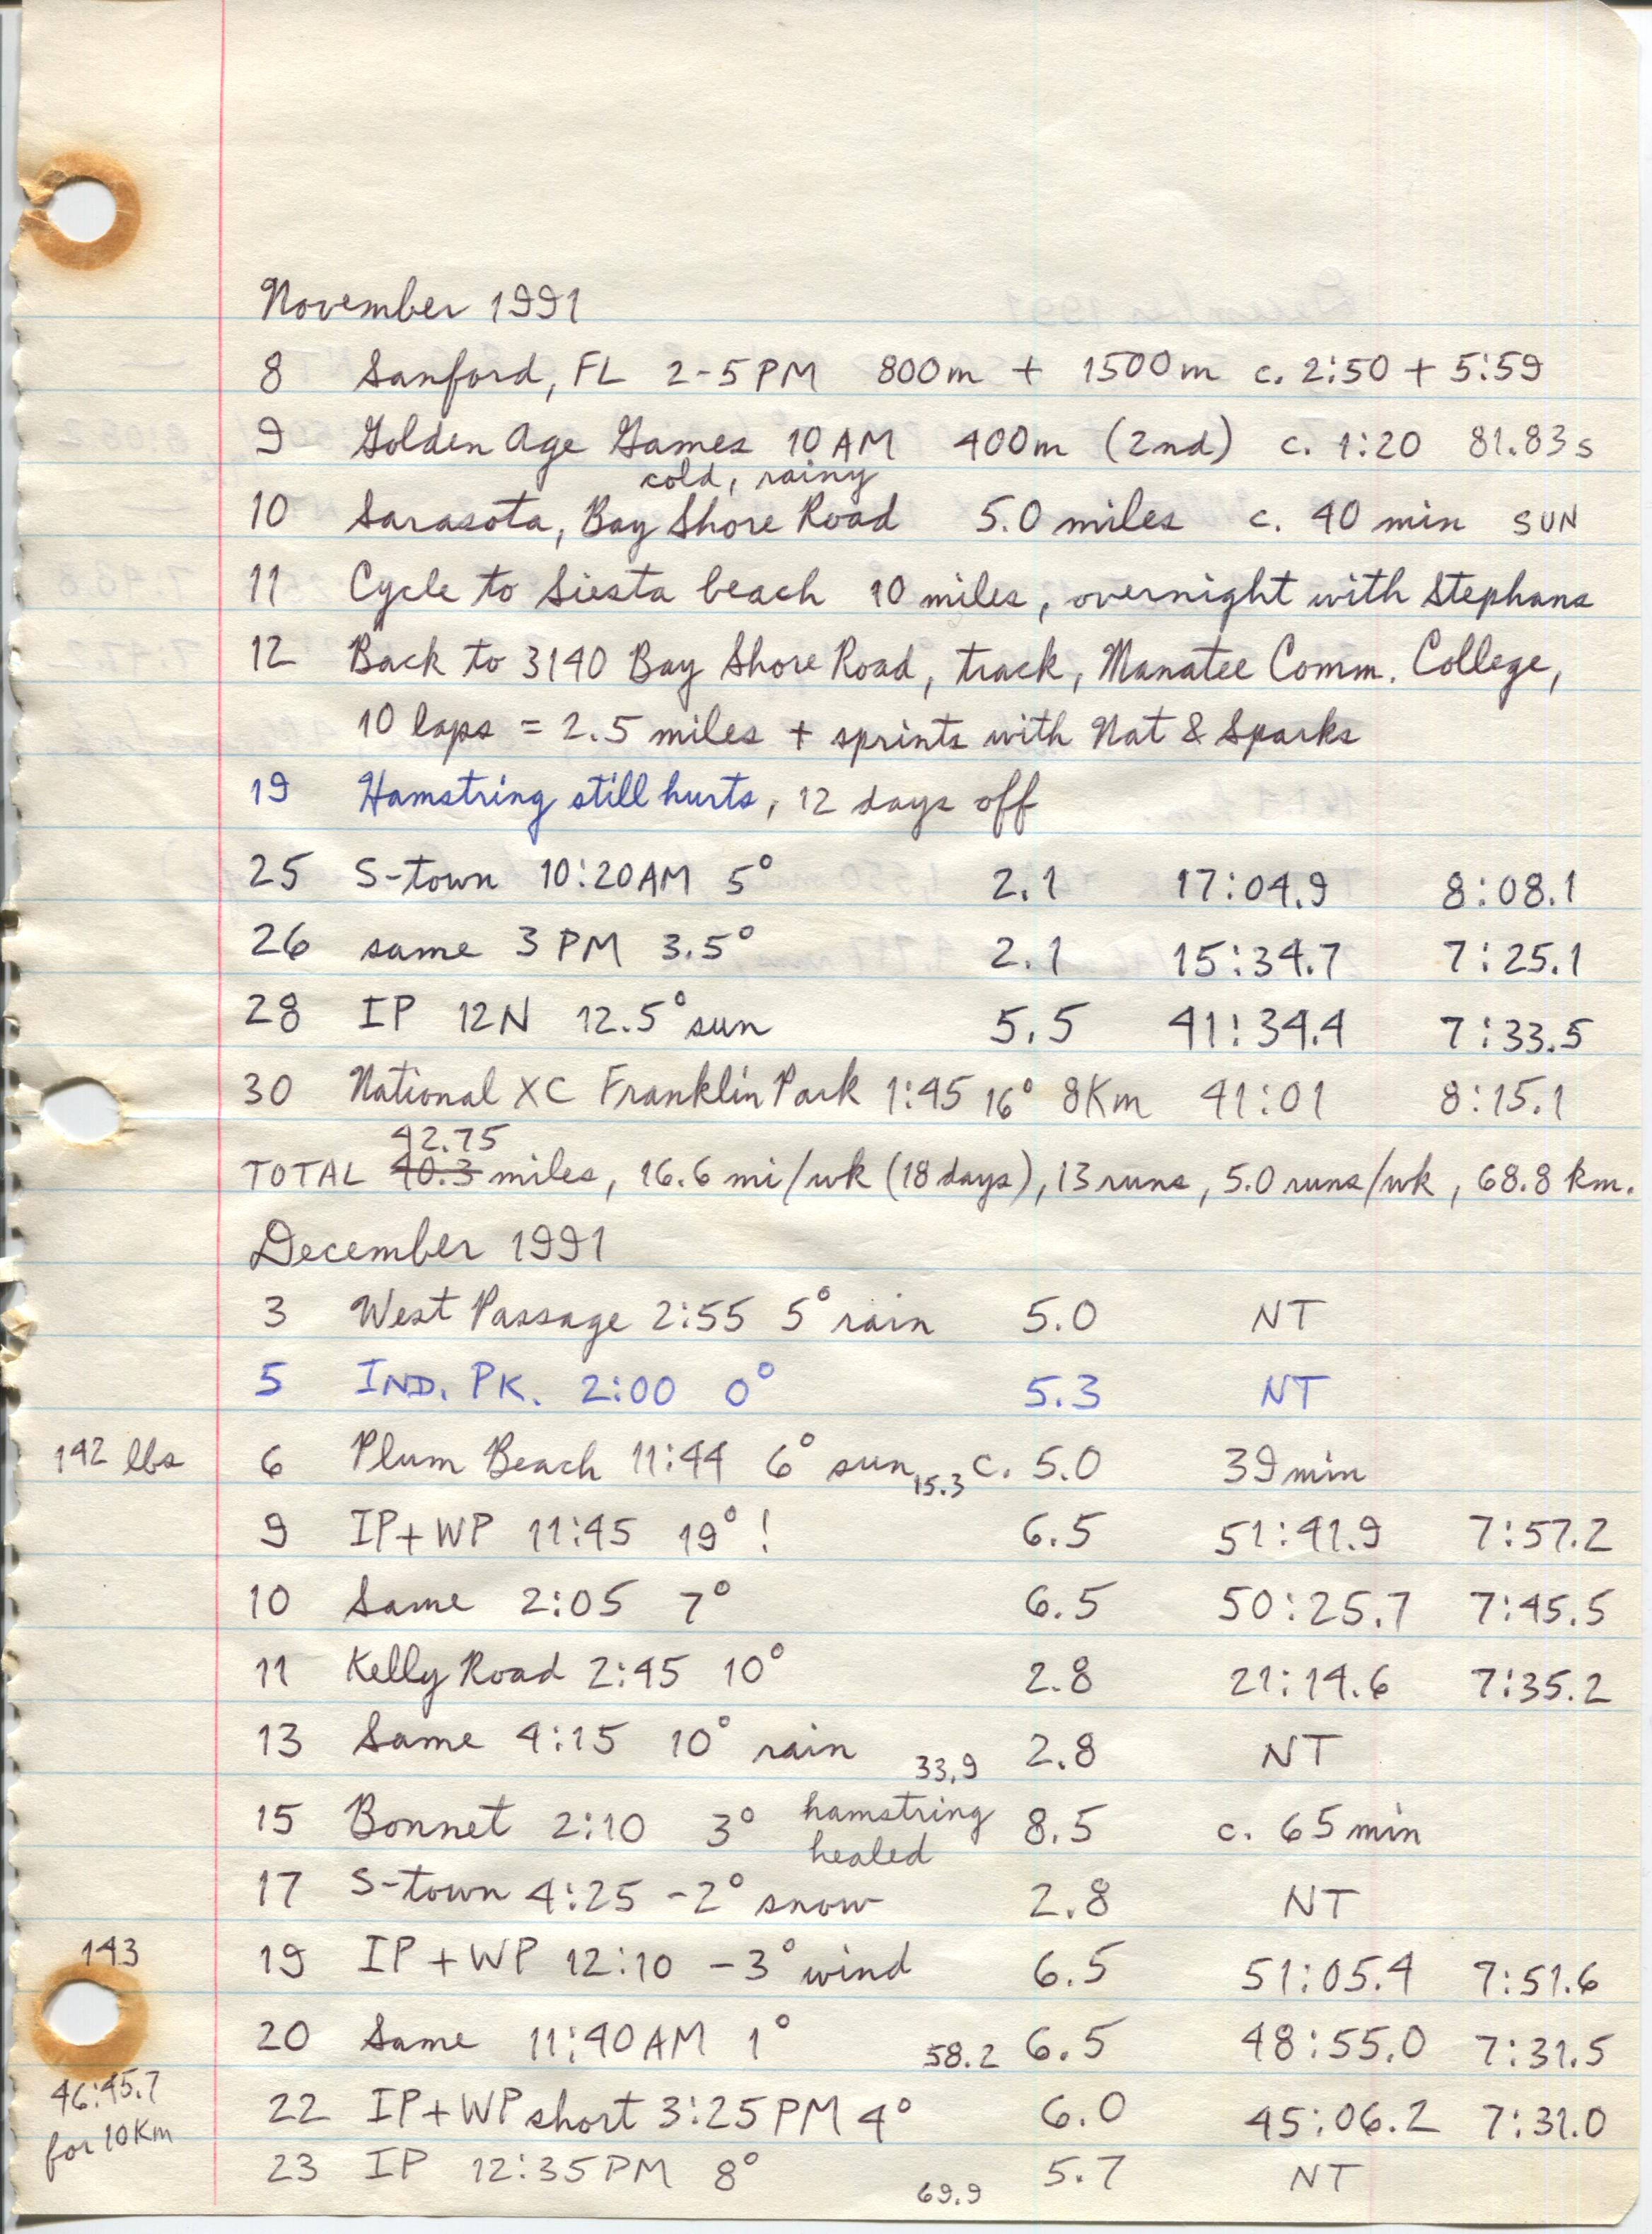 November 1991
8 Sanford, FL 2-5 PM 800m + 1500m c. 2:50 + 5:59
9 Golden Age Games 10 AM 400m (2nd) c. 1:20 81.83s
cold, rainy
10 Sarasota, Bay Shore Road 5.0 miles c. 40 min SUN
11 Cycle to Siesta beach 10 miles, overnight with Stephans
12 Back to 3140 Bay Shore Road, track, Manatee Comm. College,
10 laps = 2.5 miles + sprints with Nat & Sparks
19 Hamstring still hurts, 12 days off
25 S-town 10:20 AM 5° 2.1 17:04.9 8:08.1
26 same 3 PM 3.5° 2.1 15:34.7 7:25.1
28 IP 12N 12.5° sun 5.5 41:34.4 7:33.5
30 National XC Franklin Park 1:45 16° 8Km 41:01 8:15.1
42.75
TOTAL 40.3 miles, 16.6 mi/wk (18 days), 13 runs, 5.0 runs/wk, 68.8 km.
December 1991
3 West Passage 2:55 5° rain 5.0 NT
5 IND. PK. 2:00 0° 5.3 NT
142 lbs 6 Plum Beach 11:44 6° sun 15.3 c. 5.0 39 min
9 IP+WP 11:45 19°! 6.5 51:41.9 7:57.2
10 Same 2:05 7° 6.5 50:25.7 7:45.5
11 Kelly Road 2:45 10° 2.8 21:14.6 7:35.2
13 Same 4:15 10° rain 33.9 2.8 NT
15 Bonnet 2:10 3° hamstring healed 8.5 c. 65 min
17 S-town 4:25 -2° snow 2.8 NT
143 19 IP+WP 12:10 -3° wind 6.5 51:05.4 7:51.6
20 Same 11:40 AM 1° 58.2 6.5 48:55.0 7:31.5
46:45.7 for 10Km 22 IP+WP short 3:25 PM 4° 6.0 45:06.2 7:31.0
23 IP 12:35 PM 8° 69.9 5.7 NT